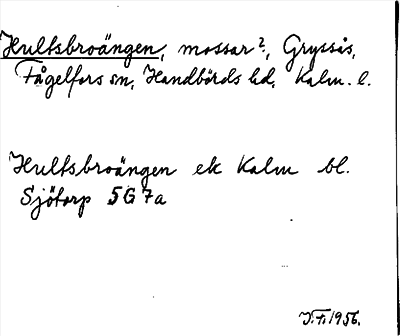 Hultsbroängen, mossar?, Gryssås,
Fågelfors sn, Handbörds hd, Kalm. l.
Hultsbroängen ek Kalm bl.
Sjötorp 5G 7a
J.F. 1956.